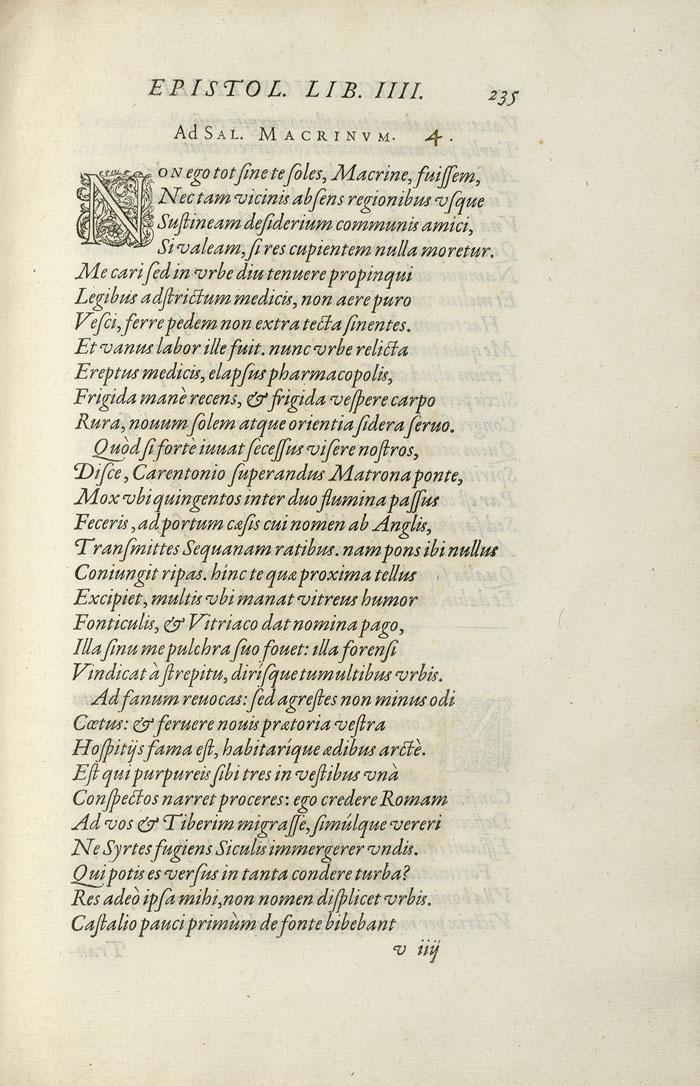 EPISTOL. LIB. IIII. 235
Ad SAL. MACRINVM. 4.
NON ego tot ſine te ſoles, Macrine, fuiſſem,
Nec tam vicinis abſens regionibus vſque
Suſtineam deſiderium communis amici,
Si valeam, ſi res cupientem nulla moretur.
Me cari ſed in vrbe diu tenuere propinqui
Legibus adſtrictum medicis, non aere puro
Veſci, ferre pedem non extra tecta ſinentes.
Et vanus labor ille fuit. nunc vrbe relicta
Ereptus medicis, elapſus pharmacopolis,
Frigida manè recens, & frigida veſpere carpo
Rura, nouum ſolem atque orientia ſidera ſeruo.
Quòd ſi fortè iuuat ſeceſſus viſere noſtros,
Diſce, Carentonio ſuperandus Matrona ponte,
Mox vbi quingentos inter duo flumina paſſus
Feceris, ad portum cæſis cui nomen ab Anglis,
Tranſmittes Sequanam ratibus. nam pons ibi nullus
Coniungit ripas. hinc te quæ proxima tellus
Excipiet, multis vbi manat vitreus humor
Fonticulis, & Vitriaco dat nomina pago,
Illa ſinu me pulchra ſuo fouet: illa forenſi
Vindicat à ſtrepitu, diríſque tumultibus vrbis.
Ad fanum reuocas: ſed agreſtes non minus odi
Cœtus: & feruere nouis prætoria veſtra
Hoſpitijs fama eſt, habitaríque ædibus arctè.
Eſt qui purpureis ſibi tres in veſtibus vnà
Conſpectos narret proceres: ego credere Romam
Ad vos & Tiberim migraſſe, ſimúlque vereri
Ne Syrtes fugiens Siculis immergerer vndis.
Qui potis es verſus in tanta condere turba?
Res adeò ipſa mihi, non nomen diſplicet vrbis.
Caſtalio pauci primùm de fonte bibebant
v iiij